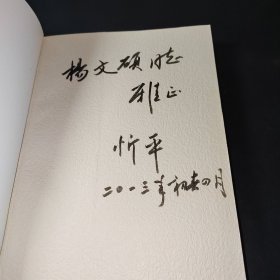 杨文硕同志
雅正
忻平
二〇一三年初春四月